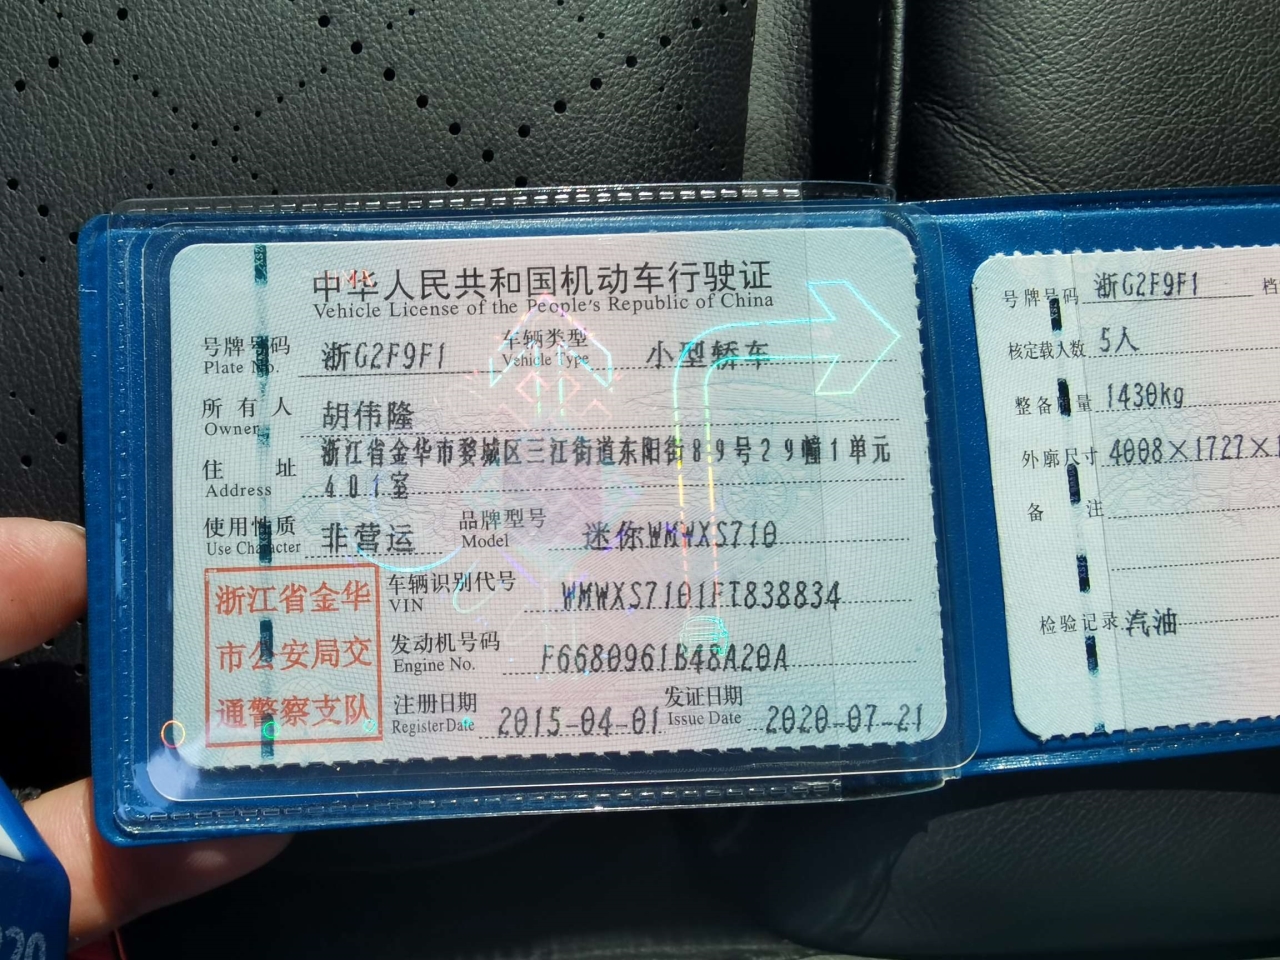 中华人民共和国机动车行驶证
Vehicle License of the People's Republic of China
号牌号码 浙G2F9F1 车辆类型 小型轿车
Plate No. Vehicle Type
所有人 胡伟隆
Owner
住址 浙江省金华市婺城区三江街道东阳街89号29幢1单元
Address 401室
使用性质 非营运 品牌型号 迷你WMWXS710
Use Character Model
浙江省金华
市公安局交
通警察支队
车辆识别代号 WMWXS7101FT838834
VIN
发动机号码 F6680961B48A20A
Engine No.
注册日期 2015-04-01 发证日期 2020-07-21
Register Date Issue Date
号牌号码 浙G2F9F1 档
核定载人数 5人
整备质量 1430kg
外廓尺寸 4008×1727×1
备注
检验记录 汽油